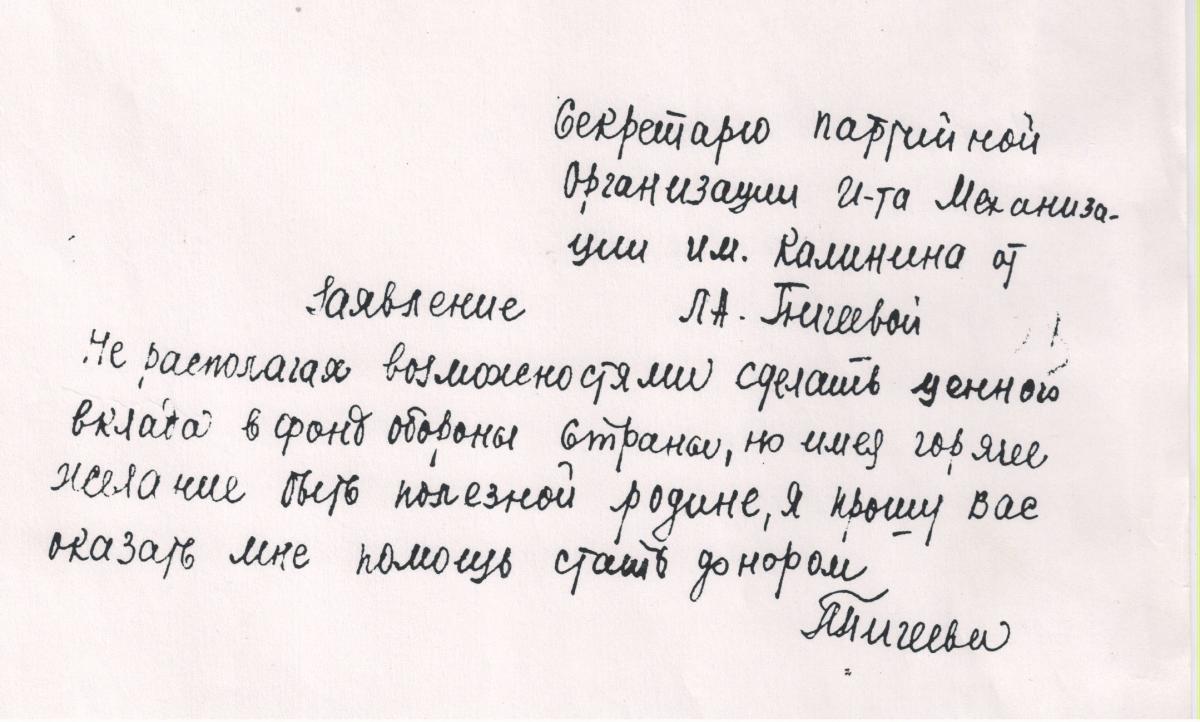 Секретарю партийной
Организации И-та Механиза-
ции им. Калинина от
Заявление Л.А. Пигеевой
Не располагая возможностями сделать ценного
вклада в фонд обороны страны, но имея горячее
желание быть полезной родине, я прошу Вас
оказать мне помощь стать донором